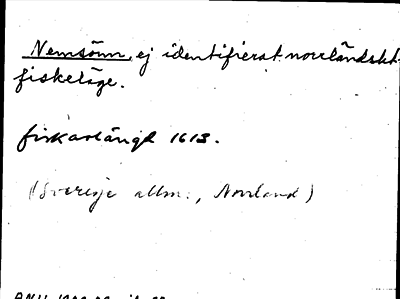 Nemsönn, ej identifierat norrländskt
fiskeläge.
fiskarlängd 1613.
(Sverige allm., Norrland)